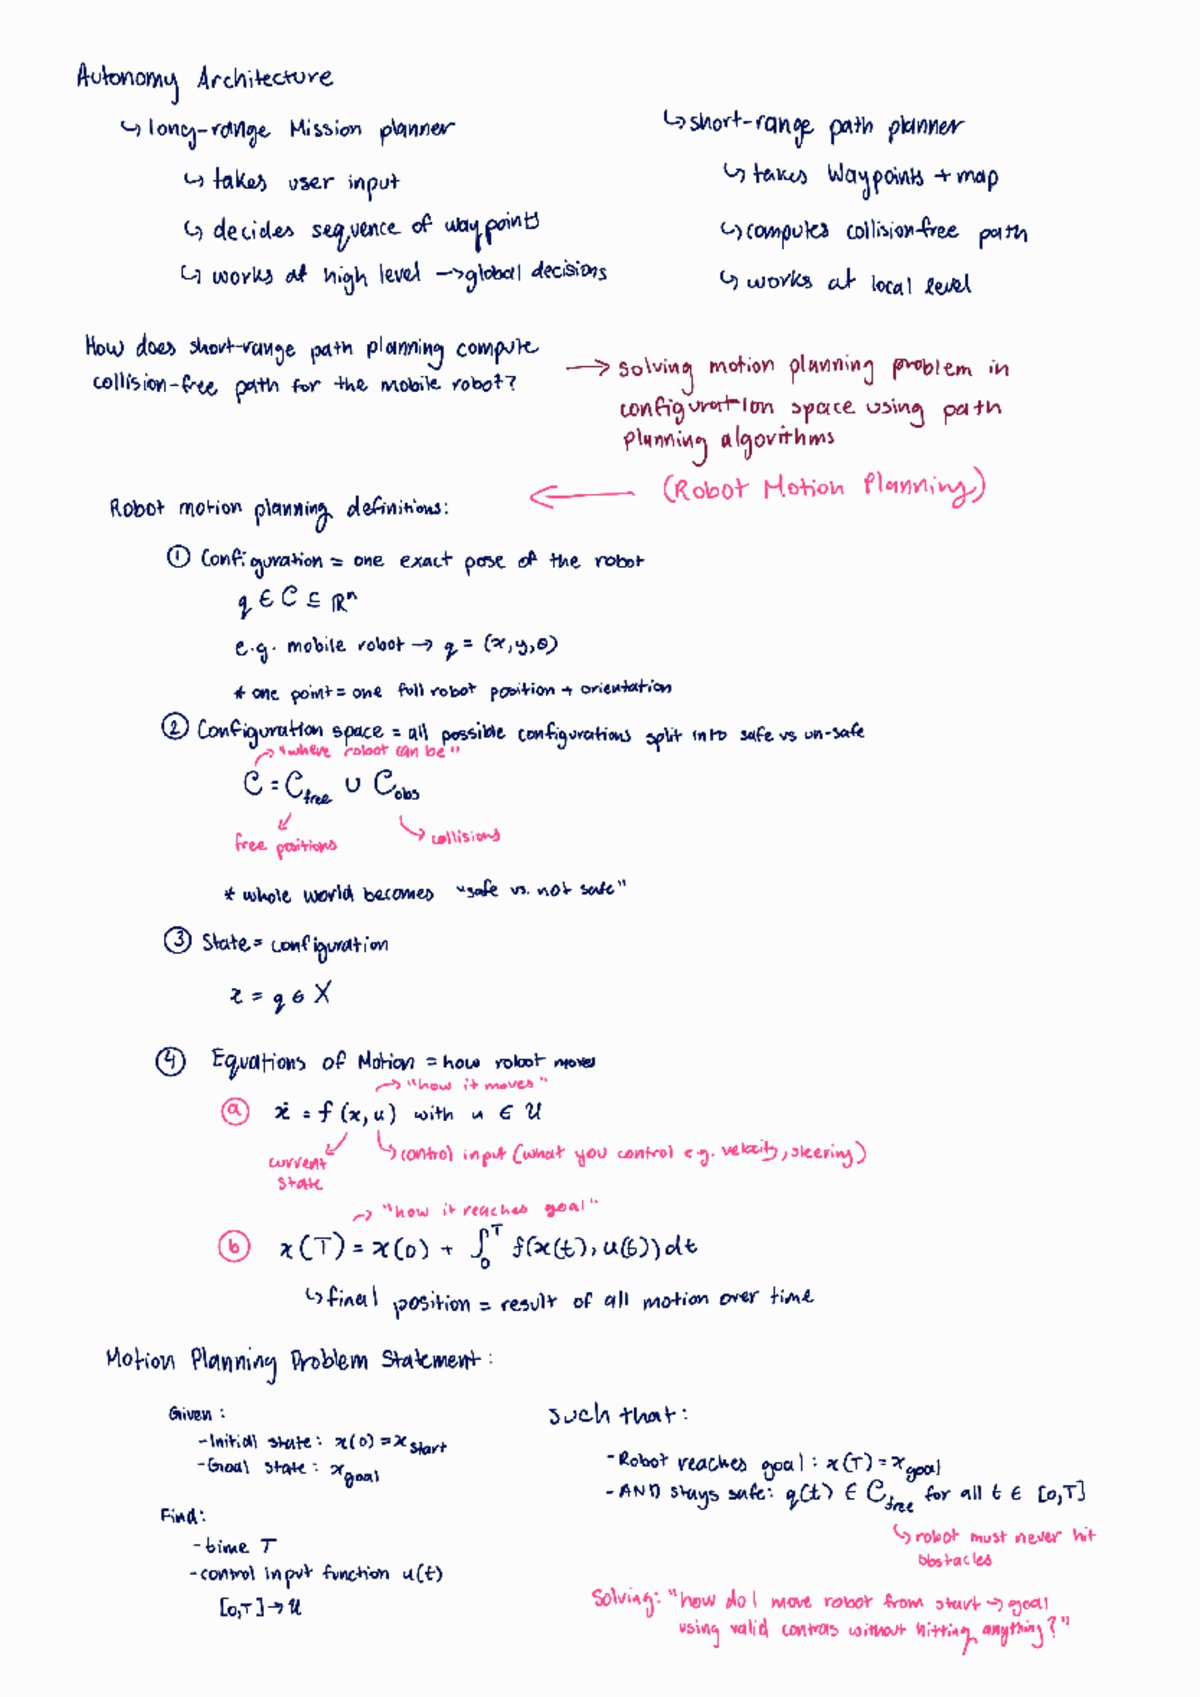 Autonomy Architecture
↳ long-range Mission planner
↳ takes user input
↳ decides sequence of waypoints
↳ works at high level → global decisions
↳ short-range path planner
↳ takes Waypoints + map
↳ computes collision-free path
↳ works at local level
How does short-range path planning compute
collision-free path for the mobile robot?
→ solving motion planning problem in
configuration space using path
planning algorithms
(Robot Motion Planning)
←
Robot motion planning definitions:
① Configuration = one exact pose of the robot
q ∈ C ⊆ ℝⁿ
e.g. mobile robot → q = (x, y, θ)
* one point = one full robot position + orientation
② Configuration space = all possible configurations split into safe vs un-safe
→ "where robot can be"
C = C_free ∪ C_obs
free positions
collisions
* whole world becomes "safe vs. not safe"
③ State = configuration
x = q ∈ X
④ Equations of Motion = how robot moves
→ "how it moves"
ⓐ ẋ = f(x, u) with u ∈ U
↳ control input (what you control e.g. velocity, steering)
current
state
→ "how it reaches goal"
ⓑ x(T) = x(0) + ∫₀ᵀ f(x(t), u(t)) dt
↳ final position = result of all motion over time
Motion Planning Problem Statement:
Given:
- Initial state: x(0) = x_start
- Goal state: x_goal
Find:
- time T
- control input function u(t)
[0,T] → U
Such that:
- Robot reaches goal: x(T) = x_goal
- AND stays safe: q(t) ∈ C_free for all t ∈ [0,T]
↳ robot must never hit
obstacles
Solving: "how do I move robot from start → goal
using valid controls without hitting anything?"